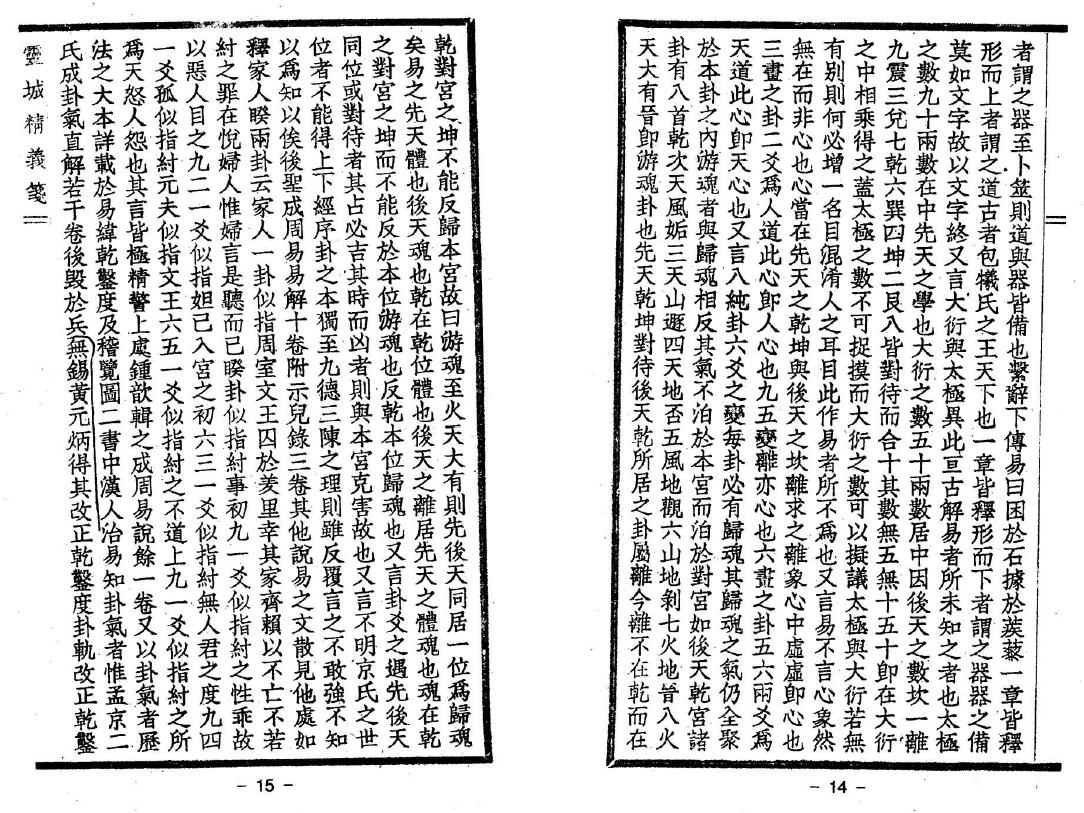 者謂之器至卜筮則道與器皆備也繫辭下傳易曰困於石據於蒺藜一章皆釋
形而上者謂之道古者包犧氏之王天下也一章皆釋形而下者謂之器器之備
莫如文字故以文字終又言大衍與太極異此亘古解易者所未知之者也太極
之數九十兩數在中先天之學也大衍之數五十兩數居中因後天之數坎一離
九震三兌七乾六巽四坤二艮八皆對待而合十其數無五無十五十即在大衍
之中相乘得之蓋太極之數不可捉摸而大衍之數可以擬議太極與大衍若無
有別則何必增一名目混淆人之耳目此作易者所不為也又言易不言心象然
無在而非心也心當在先天之乾坤與後天之坎離求之離象心中虛虛即心也
三畫之卦二爻為人道此心即人心也九五變離亦心也六畫之卦五六兩爻為
天道此心即天心也又言八純卦六爻之變每卦必有歸魂其歸魂之氣仍全聚
於本卦之內游魂者與歸魂相反其氣不泊於本宮而泊於對宮如後天乾宮諸
卦有八首乾次天風姤三天山遯四天地否五風地觀六山地剝七火地晉八火
天大有晉即游魂卦也先天乾坤對待後天乾所居之卦屬離今離不在乾而在
- 14 -
乾對宮之坤不能反歸本宮故曰游魂至火天大有則先後天同居一位為歸魂
矣易之先天體也後天魂也乾在乾位體也後天之離居先天之體魂也魂在乾
之對宮之坤而不能反於本位游魂也反乾本位歸魂也又言卦爻之遇先後天
同位或對待者其占必吉其時而凶者則與本宮克害故也又言不明京氏之世
位者不能得上下經序卦之本獨至九德三陳之理則雖反覆言之不敢強不知
以為知以俟後聖成周易易解十卷附示兒錄三卷其他說易之文散見他處如
釋家人睽兩卦云家人一卦似指周室文王囚於羑里幸其家齊賴以不亡不若
紂之罪在悅婦人惟婦言是聽而已睽卦似指紂事初九一爻似指紂之性乖故
以惡人目之九二一爻似指妲己入宮之初六三一爻似指紂無人君之度九四
一爻孤似指紂元夫似指文王六五一爻似指紂之不道上九一爻似指紂之所
為天怒人怨也其言皆極精警上虞鍾歆輯之成周易說餘一卷又以卦氣者歷
法之大本詳載於易緯乾鑿度及稽覽圖二書中漢人治易知卦氣者惟孟京二
氏成卦氣直解若干卷後毀於兵無錫黃元炳得其改正乾鑿度卦軌改正乾鑿
靈城精義箋
- 15 -